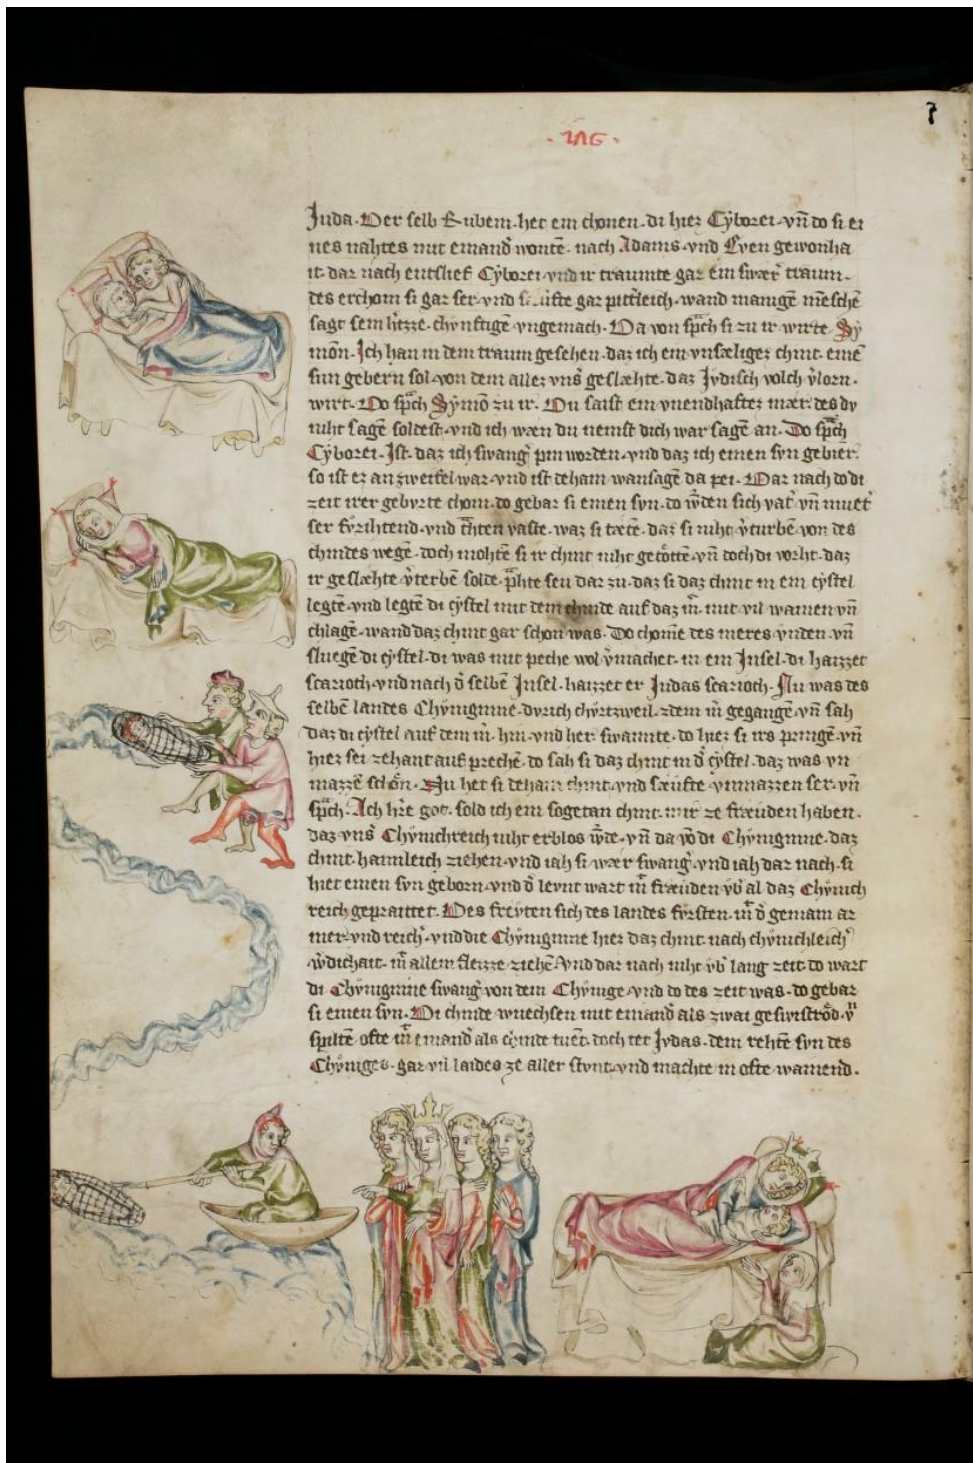 · IUG ·
Juda. Der selb Rubem. het ein chonen. di hiez Cyborei. vñ do si ei
nes nahtes mit einand̾ wontē. nach Adams. vnd Even gewonha
it. dar nach entslief Cyborei. vnd ir traumte gar ein swær traum.
des erchom si gar ser. vnd sæufte gar pitterleich. wand manigē mēschē
sagt sein h̾tzze. chvnftigē vngemach. Da von sp̄ch si zu ir wirte. Sy
mōn. Ich han in dem traum gesehen. daz ich ein vnsæligez chint. einē
sun gebern sol. von dem allez vns̾ geslæhte. daz Jvdisch volch v̾lorn.
wirt. Do sp̄ch Symō zu ir. Du saist ein vnendhaftez mær. des dv
niht sagē soldest. vnd ich wæn du nemst dich war sagē an. Do sp̄ch
Cyborei. Ist. daz ich swang̾ pin worden. vnd daz ich einen svn gebier.
so ist ez an zweifel war. vnd ist dehain wansagē da pei. Dar nach do di
zeit irer gebvrte chom. do gebar si einen svn. do w̾den sich vat̾. vñ muet̾
ser fv̊rihtend. vnd t̄hten vaste. waz si tætē. daz si niht v̾turbē von des
chindes wegē. doch mohtē si ir chint niht getöttē. vñ doch di vorht. daz
ir geslæhte v̾terbē solde. p̄hte seu dar zu. daz si daz chint in ein cystel
legtē. vnd legtē di cystel mit dem chinde auf daz m̾. mit vil wainen vñ
chlagē. wand daz chint gar schon was. Do chomē des meres vnden. vñ
sluegē di cystel. di was mit peche wol v̾machet. in ein Insel. di haizzet
scarioth. vnd nach d̾ selbē Insel. haizzet er Judas scarioth. Nu was des
selbē landes Chv̊niginne. dvrich chvrtzweil. zdem m̾ gegangē. vñ sah
daz di cystel auf dem m̾. hin. vnd her swamte. do hiez si irs pringē. vñ
hiez sei zehant auf prechē. do sah si daz chint in d̾ cystel. daz was vn
mazzē schȫn. Nu het si dehain chint. vnd sæufte vnmazzen ser. vñ
sp̄ch. Ach h̾re got. sold ich ein sogetan chint. mir ze fræuden haben.
daz vns̾ Chv̊nichreich niht erblos w̾de. vñ da w̾ di Chv̊niginne. daz
chint. haimleich ziehen. vnd iah si wær swang̾. vnd iah dar nach. si
hiet einen svn geborn. vnd d̾ levnt wart m̾ fræuden vb̾ al daz Chv̊nich
reich gepraittet. Des frevten sich des landes fvrsten. m̾ d̾ gemain ar
mer. vnd reich̾. vnd die Chv̊niginne hiez daz chint. nach chv̊nichleich̾
w̾dichait. m̾ allem fleizze ziehē. Vnd dar nach niht vb̾ lang zeit. do wart
di Chv̊niginne swang̾ von dem Chv̊nige. vnd do des zeit was. do gebar
si einen svn. Di chinde wuechsen mit einand̾ als zwai geswistrȫd. v̾
spiltē ofte m̾ einand̾ als chinde tuet. doch tet Jvdas. dem rehtē svn des
Chv̊niges. gar vil laides ze aller stvnt. vnd machte in ofte wainend.